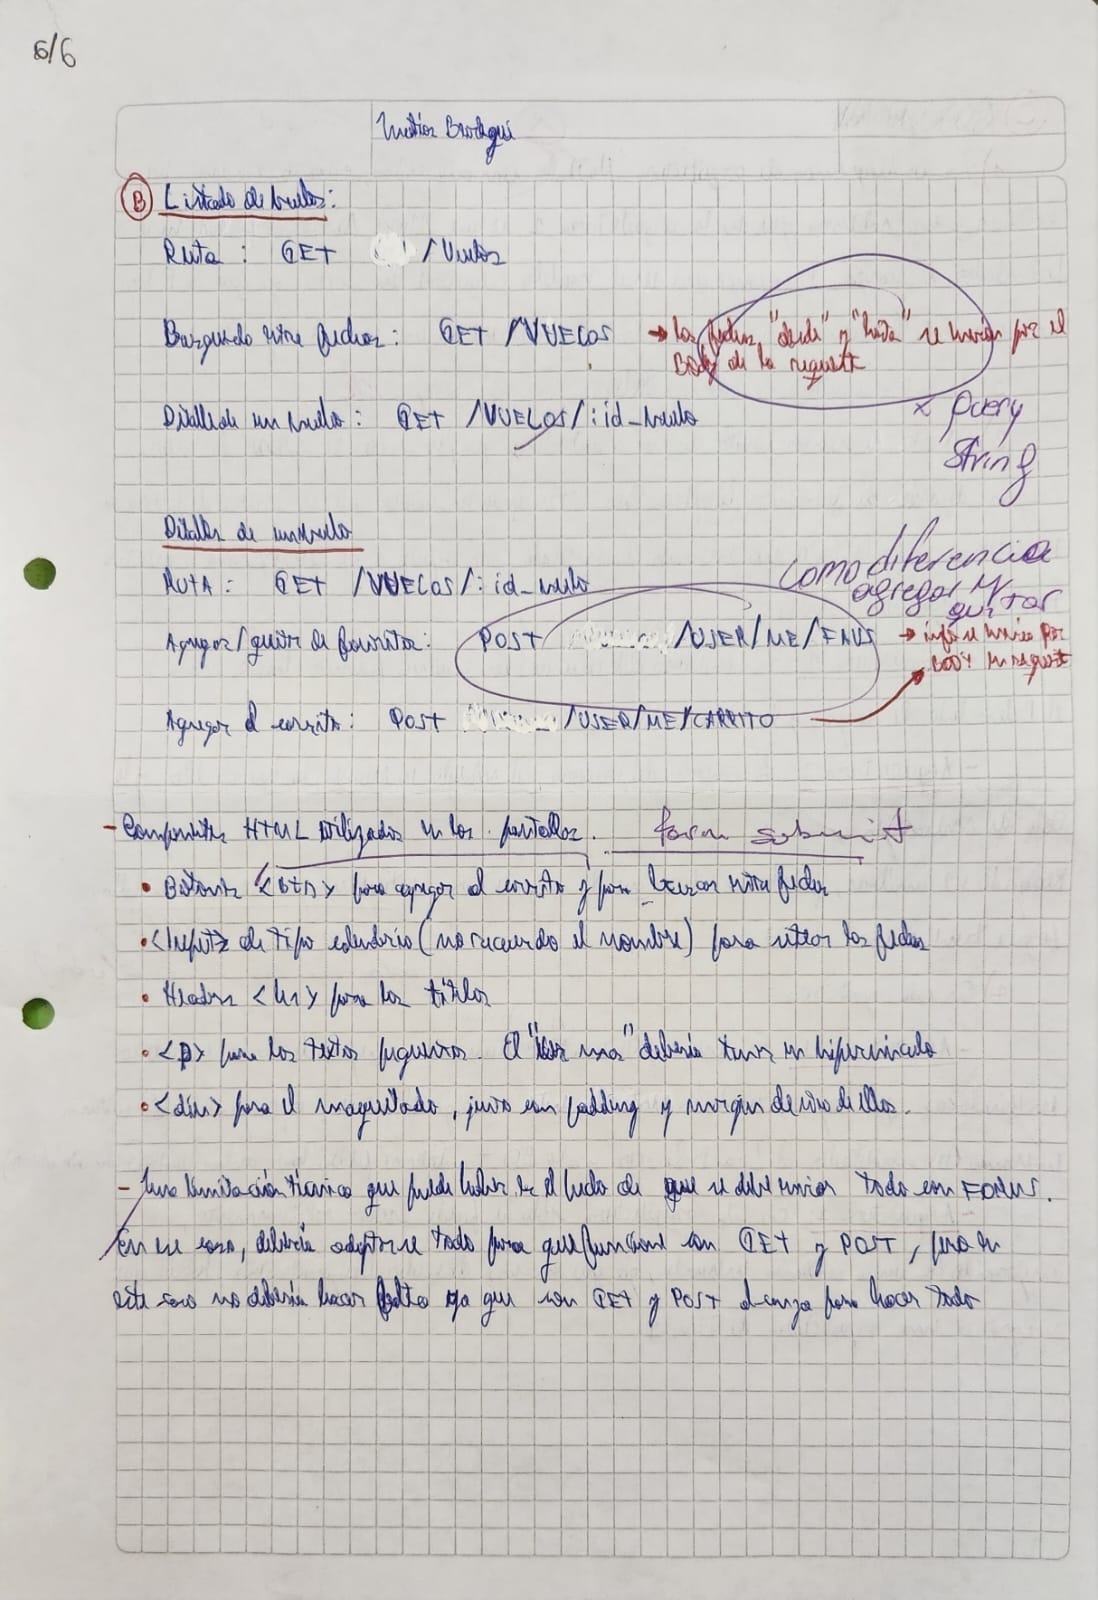 6/6
Matías
B Listado de vuelos:
Ruta: GET /Vuelos
Búsqueda entre fechas: GET /VUELOS → las fechas "desde" y "hasta" se envían por el
Body de la request
x Query
String
Detalle de un vuelo: GET /VUELOS/:id_vuelo
Detalles de un vuelo
RUTA: GET /VUELOS/:id_vuelo
como diferencia
agregar y
quitar
Agregar/quitar de favoritos: POST /USER/ME/FAVS → info se envía por
BODY en request
Agregar al carrito: POST /USER/ME/CARRITO
- Componentes HTML utilizados en las pantallas. form submit
• Botones <Btn> para agregar al carrito y para buscar entre fechas
• <Input> de tipo calendario (no recuerdo el nombre) para setear las fechas
• Headers <h1> para los títulos
• <p> para los textos pequeños. El "leer mas" debería tener un hipervínculo
• <div> para el maquetado, junto con padding y margin dentro de ellos.
- Una limitación técnica que puede haber es el hecho de que se debe enviar todo con FORMS.
En ese caso, debería adaptarse todo para que funcione con GET y POST, pero en
este caso no debería hacer falta ya que con GET y POST alcanza para hacer todo